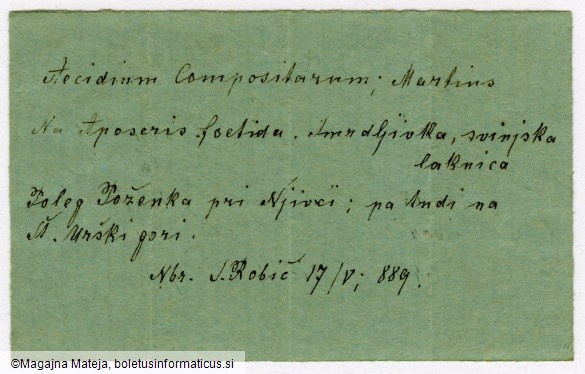 Aecidium Compositarum; Martius
Na Aposeris foetida. Smrdljivka, svinjska
laknica
Poleg Poženka pri Njivci; pa tudi na
Št. Urški gori.
Nbr. S. Robič 17/V; 889.
©Magajna Mateja, boletusinformaticus.si